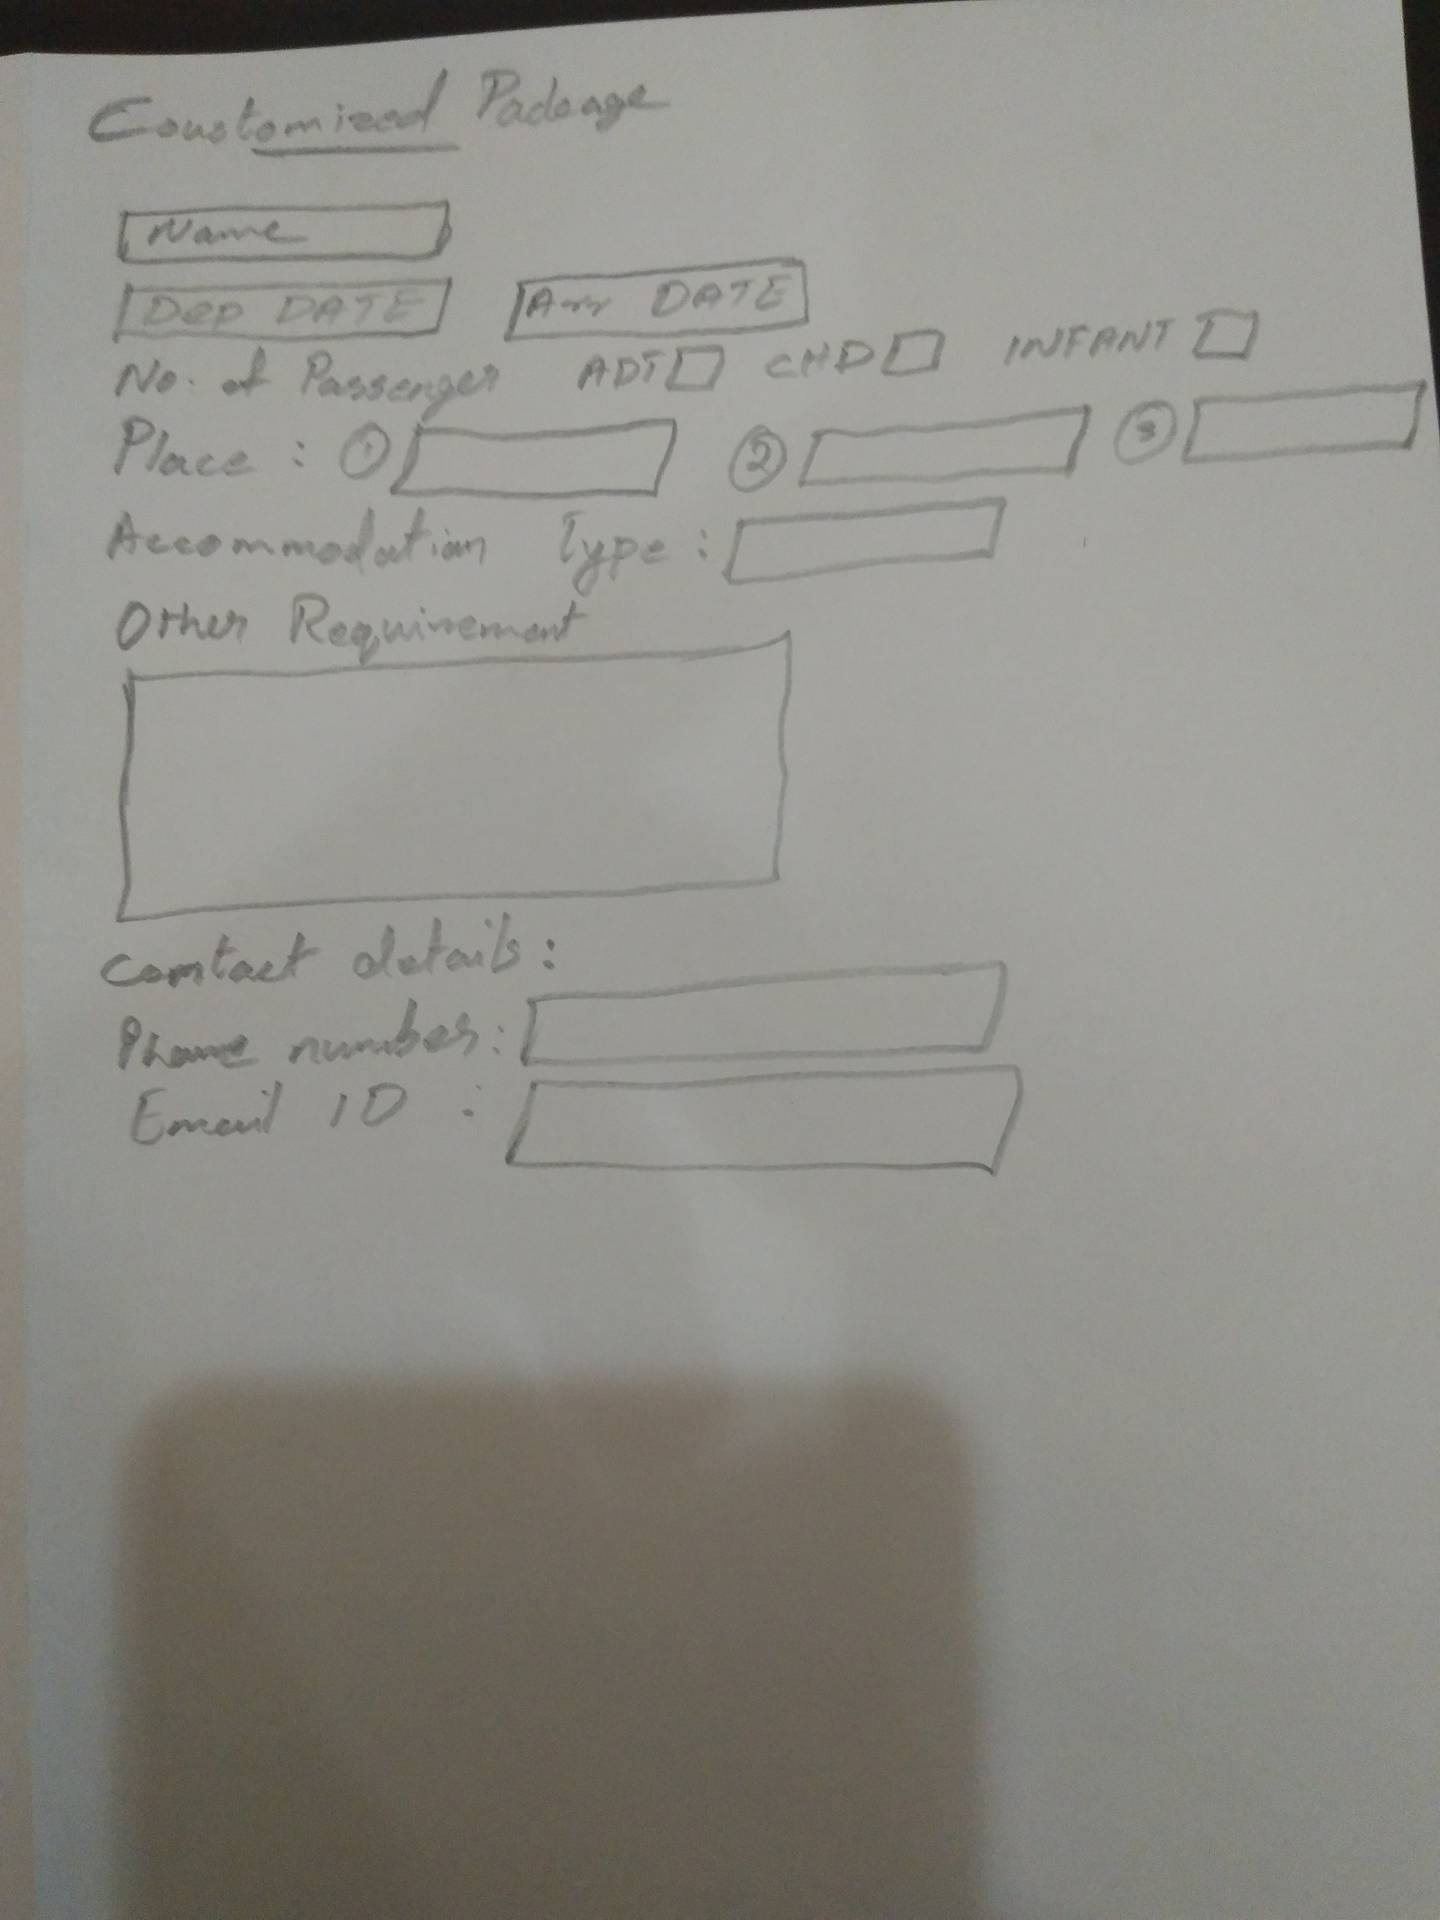 Coustomized Package
Name
Dep DATE Arr DATE
No. of Passenger ADT CHD INFANT
Place : 1 2 3
Accommodation Type :
Other Requirement
Contact details :
Phone number :
Email ID :